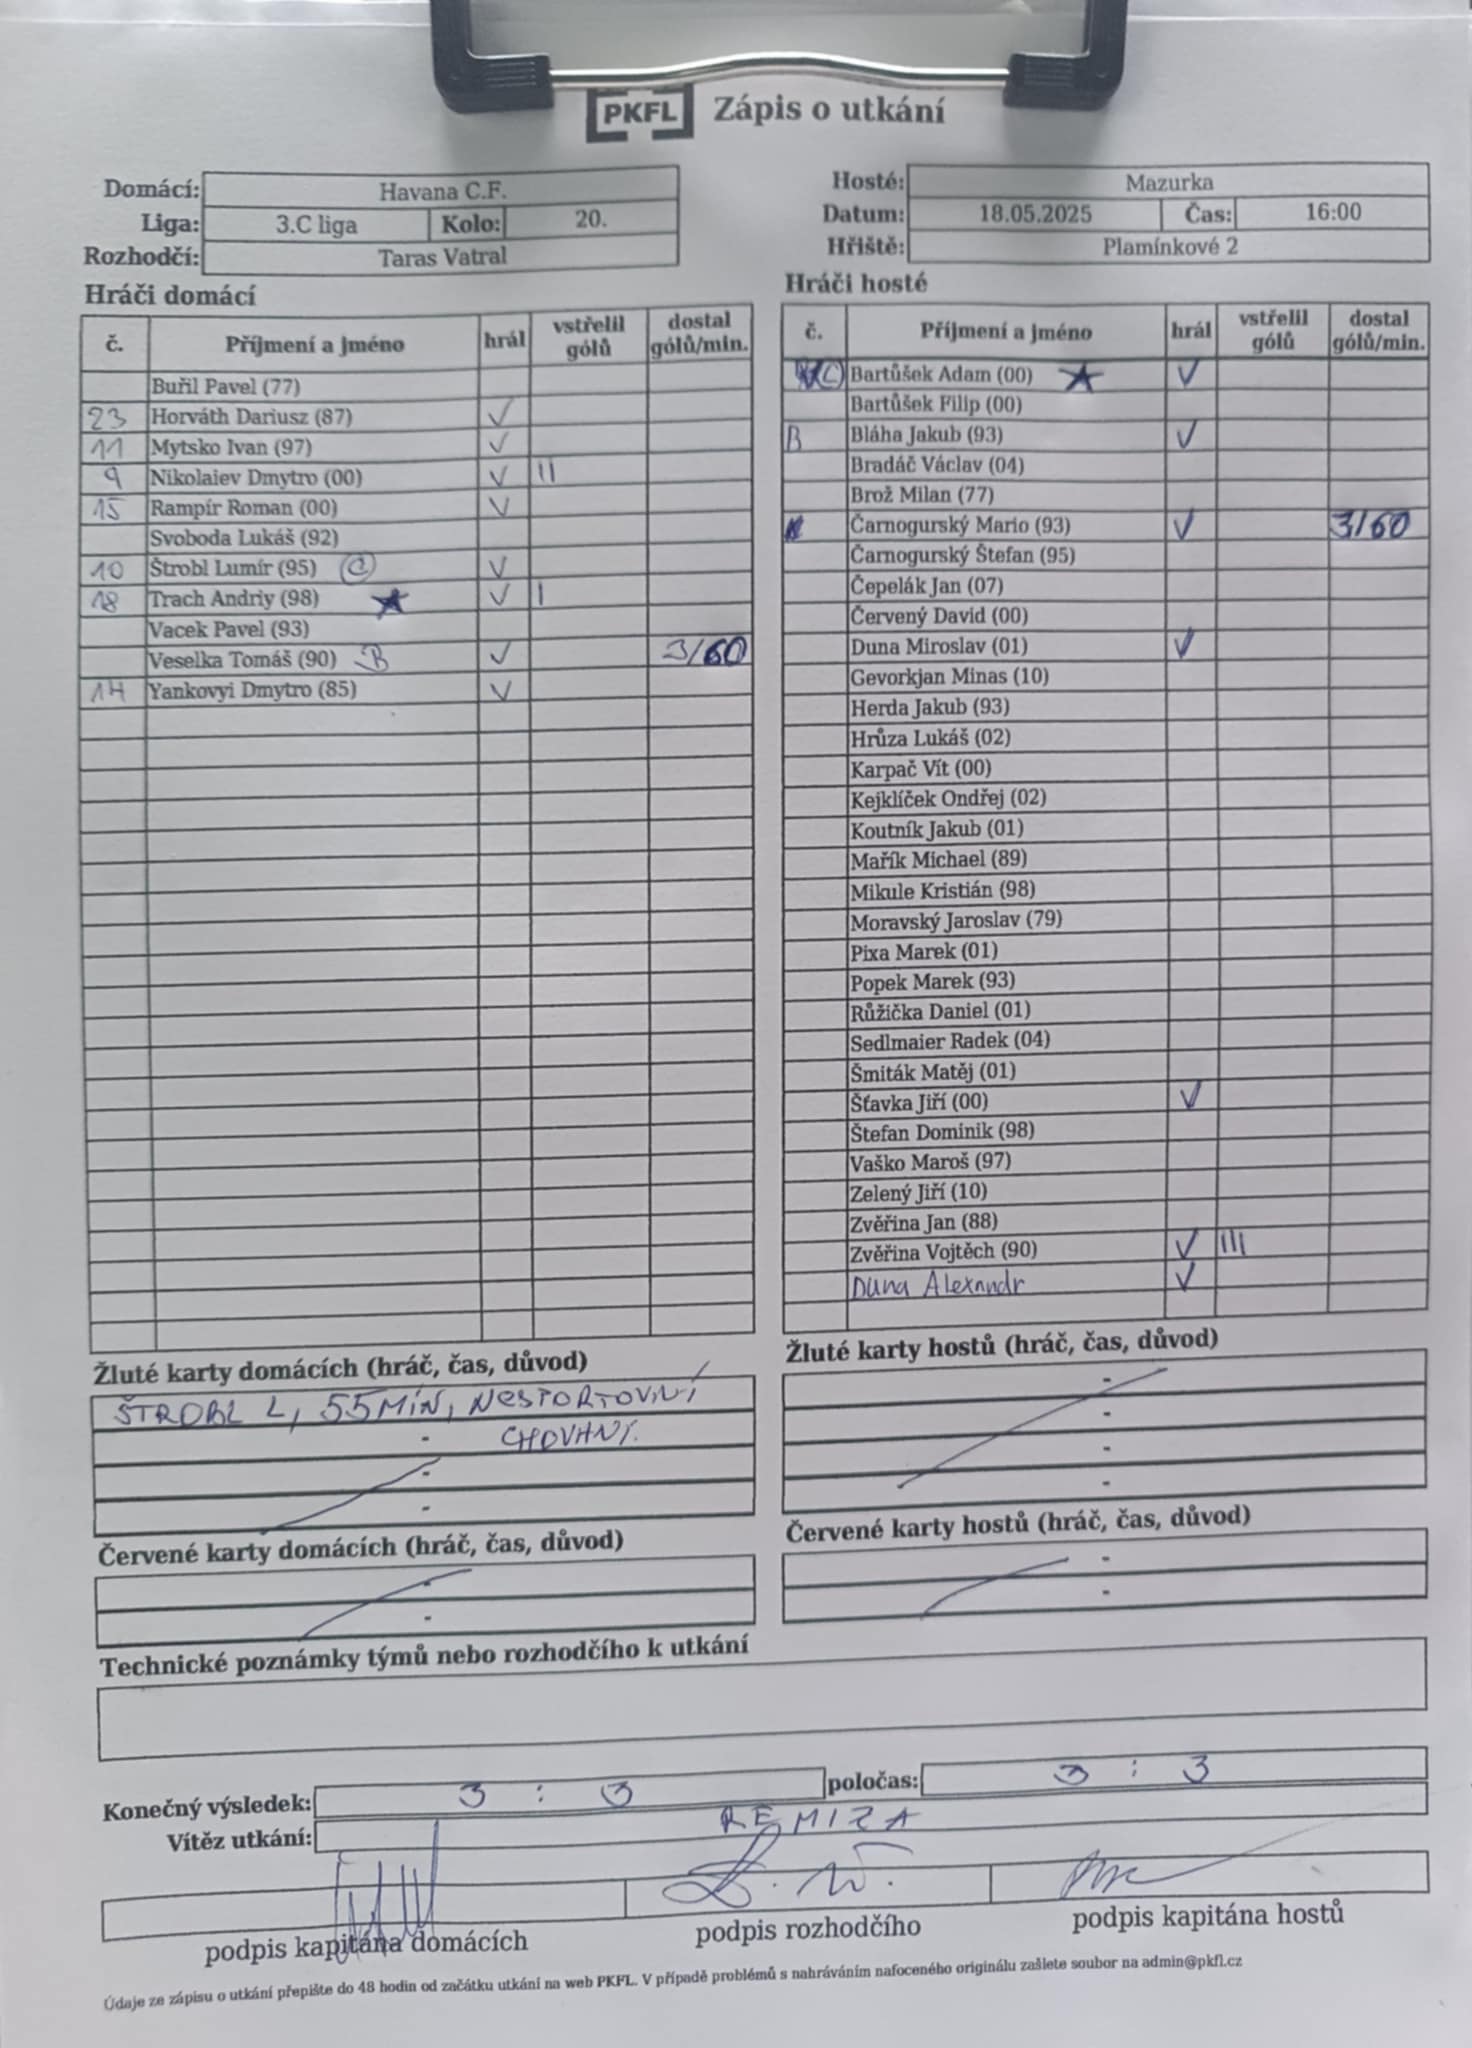 PKFL Zápis o utkání
Domácí: Havana C.F.
Liga: 3.C liga Kolo: 20.
Rozhodčí: Taras Vatral
Hosté: Mazurka
Datum: 18.05.2025 Čas: 16:00
Hřiště: Plamínkové 2
Hráči domácí
č. Příjmení a jméno hrál vstřelil gólů dostal gólů/min.
Buřil Pavel (77)
23 Horváth Dariusz (87) V
11 Mytsko Ivan (97) V
9 Nikolaiev Dmytro (00) V II
15 Rampír Roman (00) V
Svoboda Lukáš (92)
10 Štrobl Lumír (95) C V
18 Trach Andriy (98) ★ V I
Vacek Pavel (93)
Veselka Tomáš (90) B V 3/60
14 Yankovyi Dmytro (85) V
Hráči hosté
č. Příjmení a jméno hrál vstřelil gólů dostal gólů/min.
C Bartůšek Adam (00) ★ V
Bartůšek Filip (00)
B Bláha Jakub (93) V
Bradáč Václav (04)
Brož Milan (77)
Čarnogurský Mario (93) V 3/60
Čarnogurský Štefan (95)
Čepelák Jan (07)
Červený David (00)
Duna Miroslav (01) V
Gevorkjan Minas (10)
Herda Jakub (93)
Hrůza Lukáš (02)
Karpač Vít (00)
Kejklíček Ondřej (02)
Koutník Jakub (01)
Mařík Michael (89)
Mikule Kristián (98)
Moravský Jaroslav (79)
Pixa Marek (01)
Popek Marek (93)
Růžička Daniel (01)
Sedlmaier Radek (04)
Šmiták Matěj (01)
Šťavka Jiří (00) V
Štefan Dominik (98)
Vaško Maroš (97)
Zelený Jiří (10)
Zvěřina Jan (88)
Zvěřina Vojtěch (90) V III
Duna Alexandr V
Žluté karty domácích (hráč, čas, důvod)
ŠTROBL L, 55 MIN, NESPORTOVNÍ
- CHOVÁNÍ.
-
-
Žluté karty hostů (hráč, čas, důvod)
-
-
-
-
Červené karty domácích (hráč, čas, důvod)
-
-
Červené karty hostů (hráč, čas, důvod)
-
-
Technické poznámky týmů nebo rozhodčího k utkání
Konečný výsledek: 3 : 3 poločas: 3 : 3
Vítěz utkání: REMIZA
podpis kapitána domácích podpis rozhodčího podpis kapitána hostů
Údaje ze zápisu o utkání přepište do 48 hodin od začátku utkání na web PKFL. V případě problémů s nahráváním nafoceného originálu zašlete soubor na admin@pkfl.cz